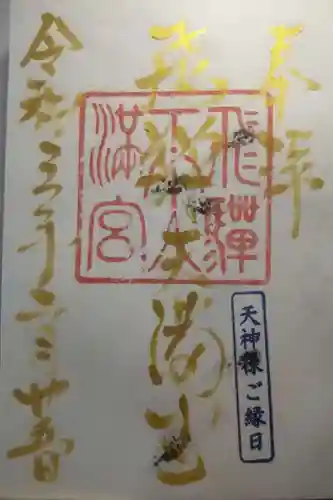 奉拝
飛騨天満宮
飛騨天満宮
天神様ご縁日
令和三年六月廿五日